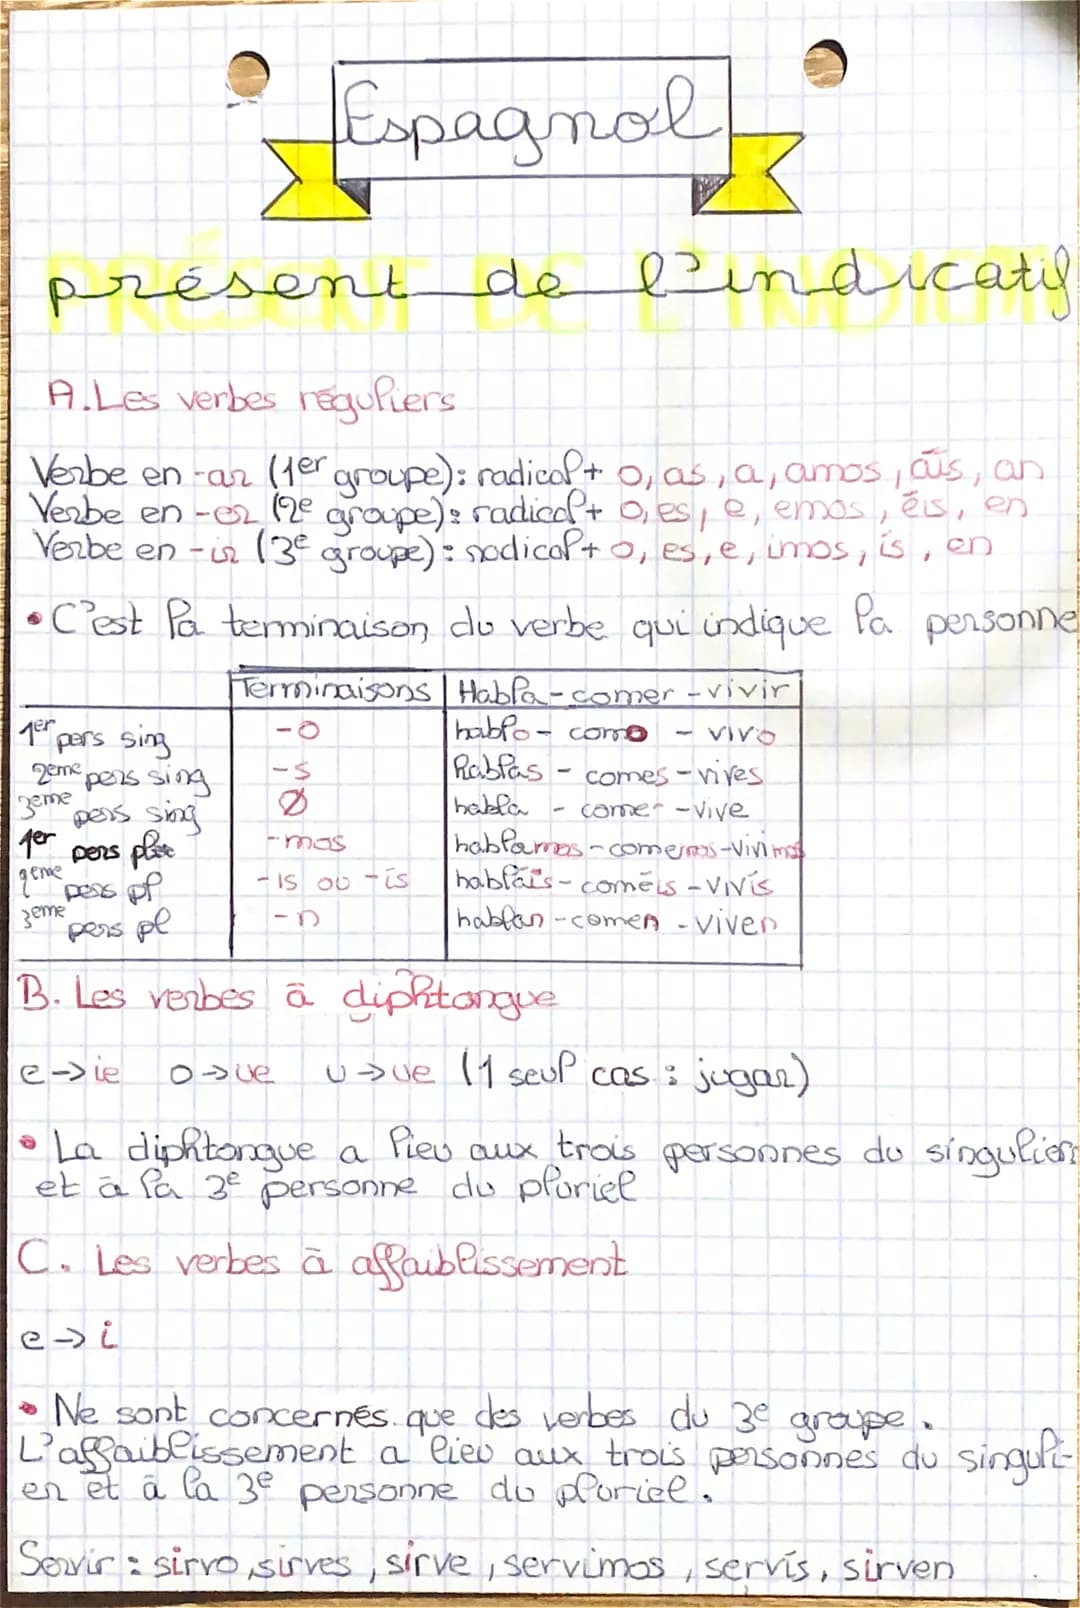 Espagnol
présent de l'indicatif
A. Les verbes réguliers
Verbe en -ar (1er groupe) : radical + o, as, a, amos, áis, an
Verbe en -er (2e groupe) : radical + o, es, e, emos, éis, en
Verbe en -ir (3e groupe) : radical + o, es, e, imos, ís, en
• C'est la terminaison du verbe qui indique la personne
Terminaisons Habla - comer - vivir
1er pers sing -o hablo - como - vivo
2eme pers sing -s hablas - comes - vives
3eme pers sing Ø habla - come - vive
1er pers -mos hablamos - comemos - vivimos
2eme pers pl -is ou -ís habláis - coméis - vivís
3eme pers pl -n hablan - comen - viven
B. Les verbes à diphtongue
e → ie o → ue u → ue (1 seul cas : jugar)
• La diphtongue a lieu aux trois personnes du singulier
et à la 3e personne du pluriel
C. Les verbes à affaiblissement
e → i
• Ne sont concernés que des verbes du 3e groupe.
L'affaiblissement a lieu aux trois personnes du singuli-
er et à la 3e personne du pluriel.
Servir : sirvo, sirves, sirve, servimos, servís, sirven